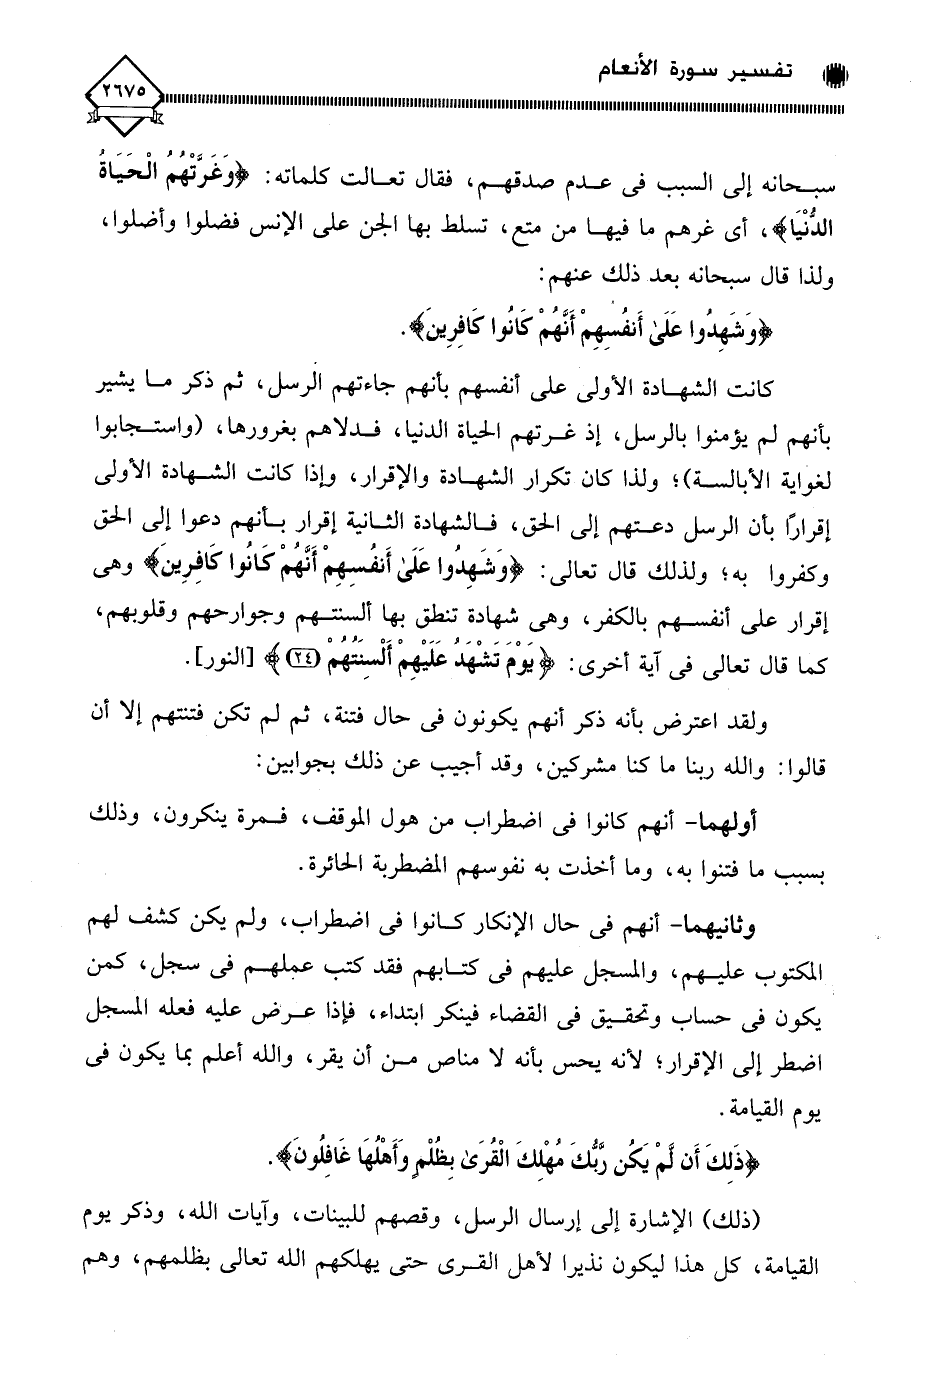 تفسير سورة الأنعام
٢٦٧٥
سبحانه إلى السبب فى عدم صدقهم، فقال تعالت كلماته: ﴿وَغَرَّتْهُمُ الْحَيَاةُ
الدُّنْيَا﴾، أى غرهم ما فيها من متع، تسلط بها الجن على الإنس فضلوا وأضلوا،
ولذا قال سبحانه بعد ذلك عنهم:
﴿وَشَهِدُوا عَلَىٰ أَنفُسِهِمْ أَنَّهُمْ كَانُوا كَافِرِينَ﴾.
كانت الشهادة الأولى على أنفسهم بأنهم جاءتهم الرسل، ثم ذكر ما يشير
بأنهم لم يؤمنوا بالرسل، إذ غرتهم الحياة الدنيا، فدلاهم بغرورها، (واستجابوا
لغواية الأبالسة)؛ ولذا كان تكرار الشهادة والإقرار، وإذا كانت الشهادة الأولى
إقرارًا بأن الرسل دعتهم إلى الحق، فالشهادة الثانية إقرار بأنهم دعوا إلى الحق
وكفروا به؛ ولذلك قال تعالى: ﴿وَشَهِدُوا عَلَىٰ أَنفُسِهِمْ أَنَّهُمْ كَانُوا كَافِرِينَ﴾ وهى
إقرار على أنفسهم بالكفر، وهى شهادة تنطق بها ألسنتهم وجوارحهم وقلوبهم،
كما قال تعالى فى آية أخرى: ﴿يَوْمَ تَشْهَدُ عَلَيْهِمْ أَلْسِنَتُهُمْ (٢٤)﴾ [النور].
ولقد اعترض بأنه ذكر أنهم يكونون فى حال فتنة، ثم لم تكن فتنتهم إلا أن
قالوا: والله ربنا ما كنا مشركين، وقد أجيب عن ذلك بجوابين:
أولهما- أنهم كانوا فى اضطراب من هول الموقف، فمرة ينكرون، وذلك
بسبب ما فتنوا به، وما أخذت به نفوسهم المضطربة الحائرة.
وثانيهما- أنهم فى حال الإنكار كانوا فى اضطراب، ولم يكن كشف لهم
المكتوب عليهم، والمسجل عليهم فى كتابهم فقد كتب عملهم فى سجل، كمن
يكون فى حساب وتحقيق فى القضاء فينكر ابتداء، فإذا عرض عليه فعله المسجل
اضطر إلى الإقرار؛ لأنه يحس بأنه لا مناص من أن يقر، والله أعلم بما يكون فى
يوم القيامة.
﴿ذَٰلِكَ أَن لَّمْ يَكُن رَّبُّكَ مُهْلِكَ الْقُرَىٰ بِظُلْمٍ وَأَهْلُهَا غَافِلُونَ﴾.
(ذلك) الإشارة إلى إرسال الرسل، وقصهم للبينات، وآيات الله، وذكر يوم
القيامة، كل هذا ليكون نذيرا لأهل القرى حتى يهلكهم الله تعالى بظلمهم، وهم